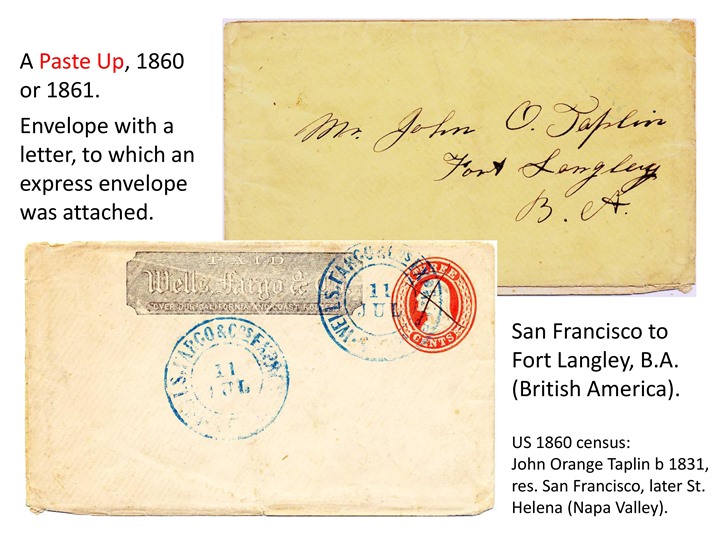 A Paste Up, 1860
or 1861.
Envelope with a
letter, to which an
express envelope
was attached.
Mr. John O. Taplin
Fort Langley
B. A.
PAID
Wells, Fargo &
OVER OUR CALIFORNIA AND COAST
WELLS, FARGO & CO'S
11
JUL
THREE
CENTS
WELLS, FARGO & CO'S EXPRESS
11
JUL
San Francisco to
Fort Langley, B.A.
(British America).
US 1860 census:
John Orange Taplin b 1831,
res. San Francisco, later St.
Helena (Napa Valley).